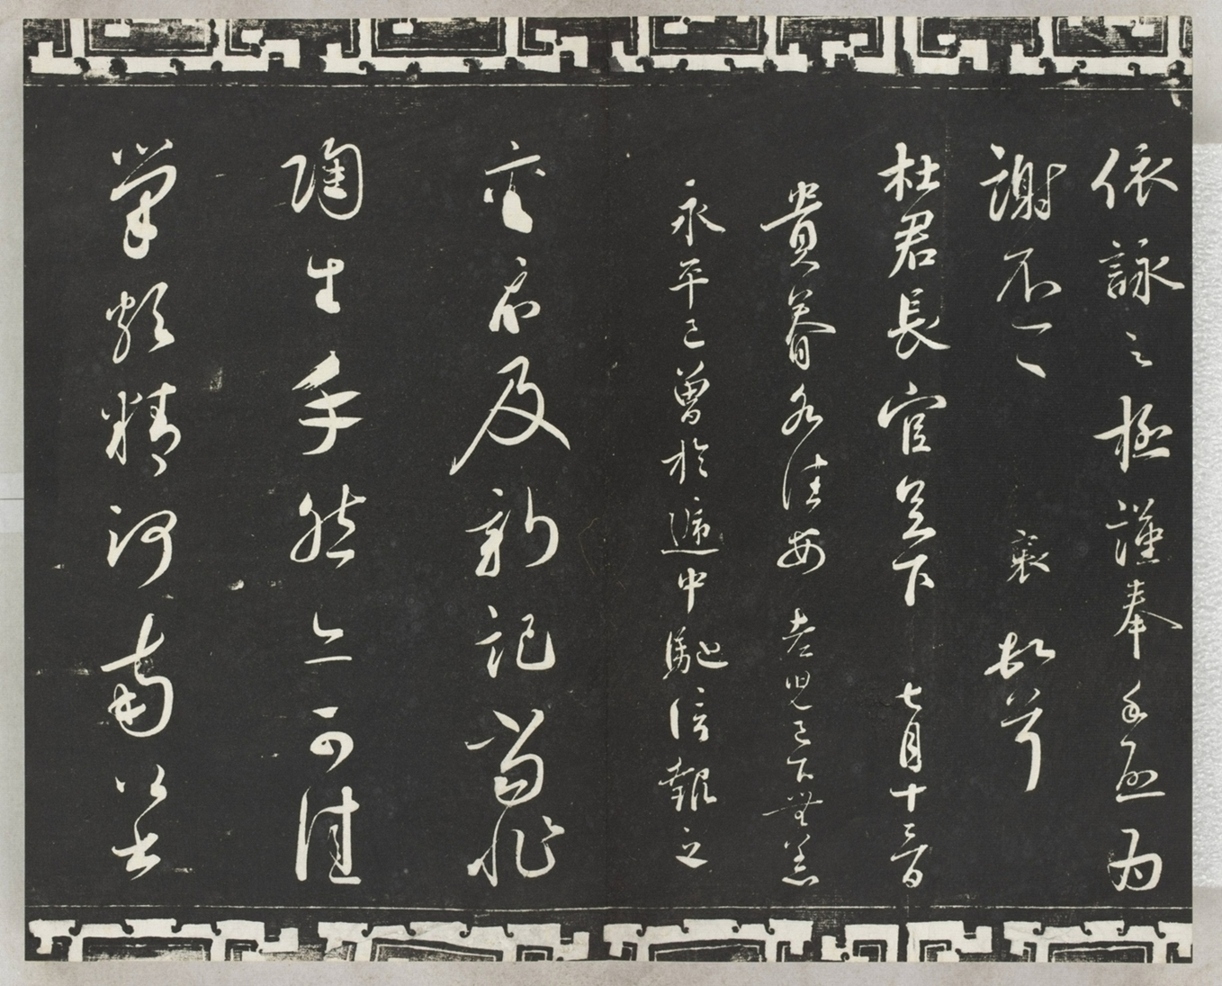 依詠之極謹奉手啟為
謝不一一 襄頓首
杜君長官足下 七月十三日
貴眷各佳安 老兒已下無恙
永平已曾於遞中馳信報之
襄示及新記當非
陶生手然亦可佳
筆頗精河南公書